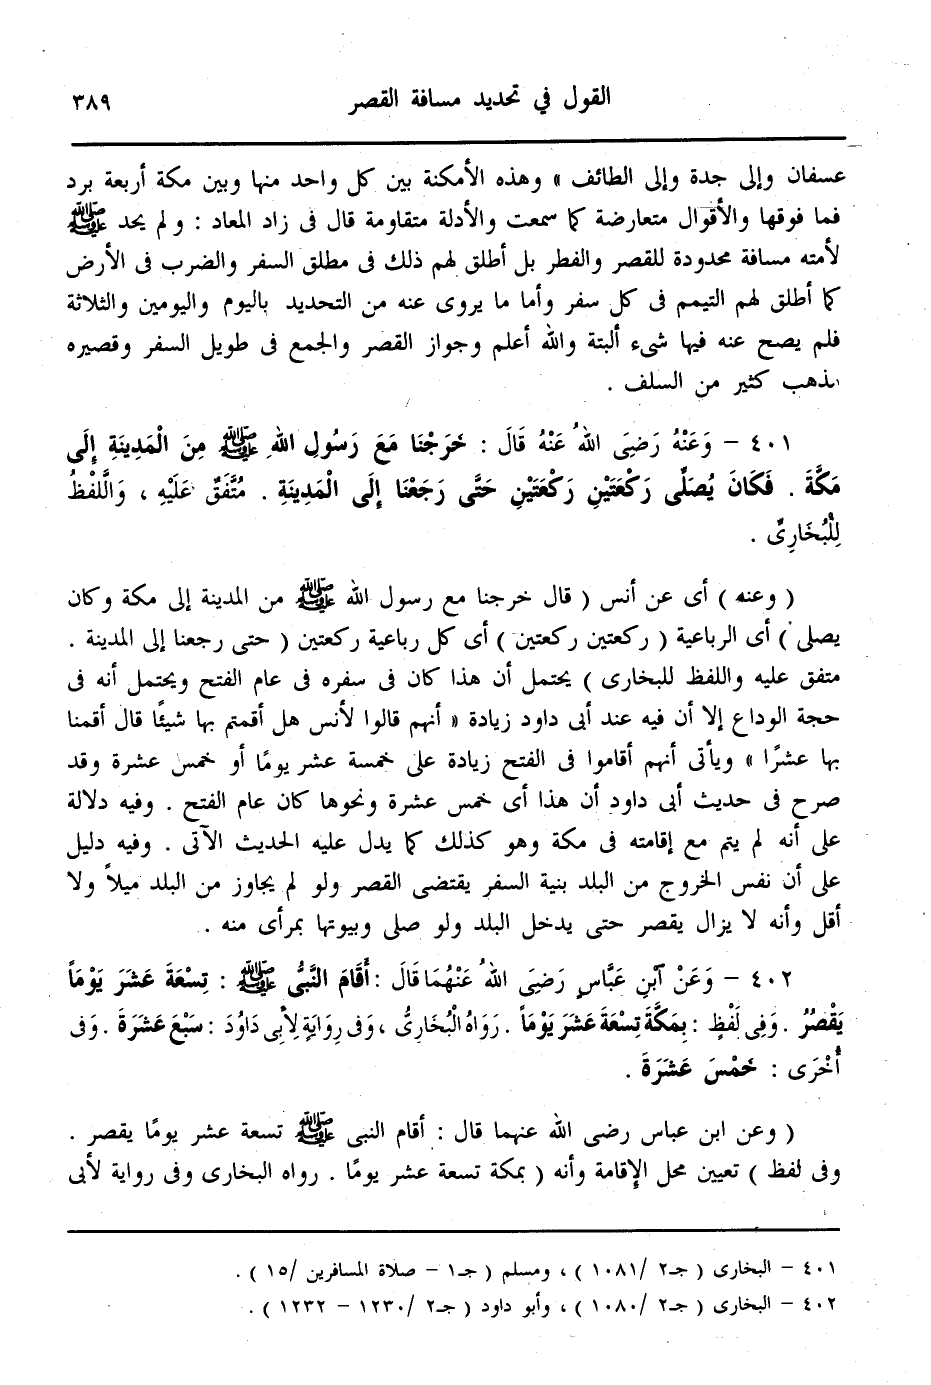 القول في تحديد مسافة القصر ٣٨٩
عسفان وإلى جدة وإلى الطائف » وهذه الأمكنة بين كل واحد منها وبين مكة أربعة برد
فما فوقها والأقوال متعارضة كما سمعت والأدلة متقاومة قال فى زاد المعاد : ولم يحد ﷺ
لأمته مسافة محدودة للقصر والفطر بل أطلق لهم ذلك فى مطلق السفر والضرب فى الأرض
كما أطلق لهم التيمم فى كل سفر وأما ما يروى عنه من التحديد باليوم واليومين والثلاثة
فلم يصح عنه فيها شىء ألبتة والله أعلم وجواز القصر والجمع فى طويل السفر وقصيره
مذهب كثير من السلف .
٤٠١ – وَعَنْهُ رَضِىَ اللهُ عَنْهُ قَالَ : خَرَجْنَا مَعَ رَسُولِ اللهِ ﷺ مِنَ الْمَدِينَةِ إِلَى
مَكَّةَ . فَكَانَ يُصَلِّى رَكْعَتَيْنِ رَكْعَتَيْنِ حَتَّى رَجَعْنَا إِلَى الْمَدِينَةِ . مُتَّفَقٌ عَلَيْهِ ، وَاللَّفْظُ
لِلْبُخَارِىِّ .
( وعنه ) أى عن أنس ( قال خرجنا مع رسول الله ﷺ من المدينة إلى مكة وكان
يصلى ) أى الرباعية ( ركعتين ركعتين ) أى كل رباعية ركعتين ( حتى رجعنا إلى المدينة .
متفق عليه واللفظ للبخارى ) يحتمل أن هذا كان فى سفره فى عام الفتح ويحتمل أنه فى
حجة الوداع إلا أن فيه عند أبى داود زيادة « أنهم قالوا لأنس هل أقمتم بها شيئًا قال أقمنا
بها عشرًا » ويأتى أنهم أقاموا فى الفتح زيادة على خمسة عشر يومًا أو خمس عشرة وقد
صرح فى حديث أبى داود أن هذا أى خمس عشرة ونحوها كان عام الفتح . وفيه دلالة
على أنه لم يتم مع إقامته فى مكة وهو كذلك كما يدل عليه الحديث الآتى . وفيه دليل
على أن نفس الخروج من البلد بنية السفر يقتضى القصر ولو لم يجاوز من البلد ميلاً ولا
أقل وأنه لا يزال يقصر حتى يدخل البلد ولو صلى وبيوتها بمرأى منه .
٤٠٢ – وَعَنْ آبْنِ عَبَّاسٍ رَضِىَ اللهُ عَنْهُمَا قَالَ : أَقَامَ النَّبِىُّ ﷺ : تِسْعَةَ عَشَرَ يَوْمَاً
يَقْصُرُ . وَفِى لَفْظٍ : بِمَكَّةَ تِسْعَةَ عَشَرَ يَوْمَاً . رَوَاهُ الْبُخَارِىُّ ، وَفى رِوَايَةٍ لِأَبِى دَاوُدَ : سَبْعَ عَشَرَةَ . وَفى
أُخْرَى : خَمْسَ عَشَرَةَ .
( وعن ابن عباس رضى الله عنهما قال : أقام النبى ﷺ تسعة عشر يومًا يقصر .
وفى لفظ ) تعيين محل الإقامة وأنه ( بمكة تسعة عشر يومًا . رواه البخارى وفى رواية لأبى
٤٠١ – البخارى ( جـ٢ /١٠٨١ ) ، ومسلم ( جـ١ – صلاة المسافرين /١٥ ) .
٤٠٢ – البخارى ( جـ٢ /١٠٨٠ ) ، وأبو داود ( جـ٢ /١٢٣٠ – ١٢٣٢ ) .